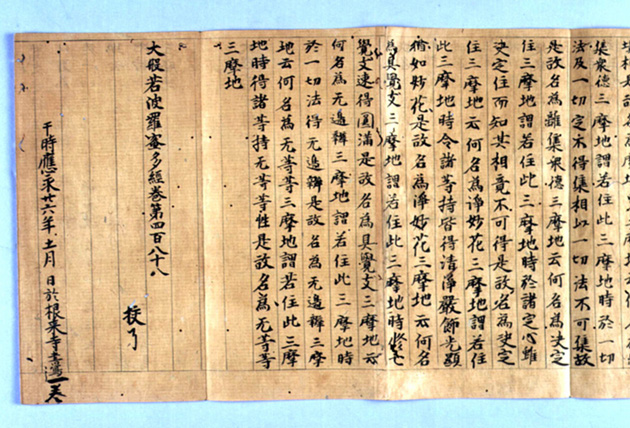 集衆德三摩地謂若住此三摩地時於一切
法及一切定不得集相以一切法不可集故
是故名為離集衆德三摩地云何名為決定
住三摩地謂若住此三摩地時於諸定心雖
決定住而知其相竟不可得是故名為決定
住三摩地云何名為淨妙花三摩地謂若住
此三摩地時令諸等持皆得清淨嚴飾光顯
猶如妙花是故名為淨妙花三摩地云何名
為具覺支三摩地謂若住此三摩地時修七
覺支速得圓滿是故名為具覺支三摩地云
何名為无邊辯三摩地謂若住此三摩地時
於一切法得无邊辯是故名為无邊辯三摩
地云何名為无等等三摩地謂若住此三摩
地時得諸等持无等等性是故名為无等等
三摩地
大般若波羅蜜多經卷第四百八十八
挍了
于時應永廿六年十一月 日於根来寺書